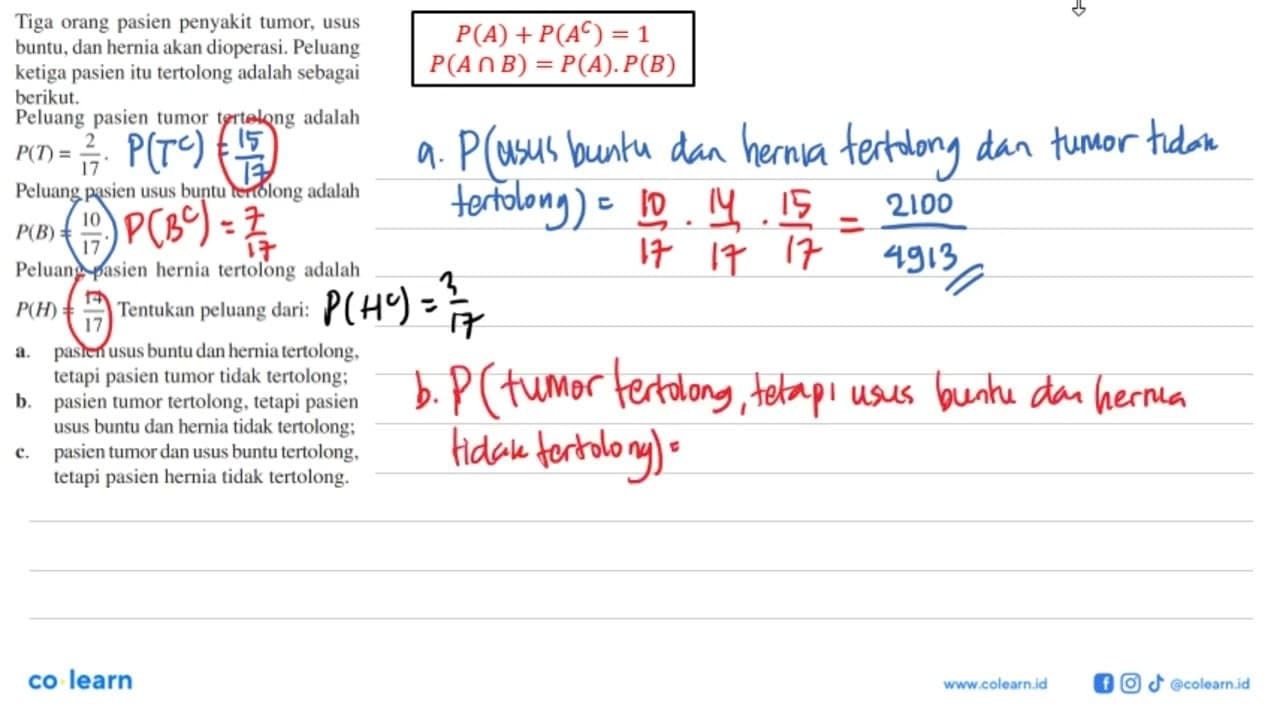 Tiga orang pasien penyakit tumor, usus
buntu, dan hernia akan dioperasi. Peluang
ketiga pasien itu tertolong adalah sebagai
berikut.
Peluang pasien tumor tertolong adalah
P(T) = 2/17. P(Tᶜ) = 15/17
Peluang pasien usus buntu tertolong adalah
P(B) = 10/17. P(Bᶜ) = 7/17
Peluang pasien hernia tertolong adalah
P(H) = 14/17. Tentukan peluang dari: P(Hᶜ) = 3/17
a. pasien usus buntu dan hernia tertolong,
tetapi pasien tumor tidak tertolong;
b. pasien tumor tertolong, tetapi pasien
usus buntu dan hernia tidak tertolong;
c. pasien tumor dan usus buntu tertolong,
tetapi pasien hernia tidak tertolong.
P(A) + P(Aᶜ) = 1
P(A ∩ B) = P(A). P(B)
a. P(usus buntu dan hernia tertolong dan tumor tidak
tertolong) = 10/17 . 14/17 . 15/17 = 2100/4913
b. P(tumor tertolong, tetapi usus buntu dan hernia
tidak tertolong) =
co learn
www.colearn.id
@colearn.id